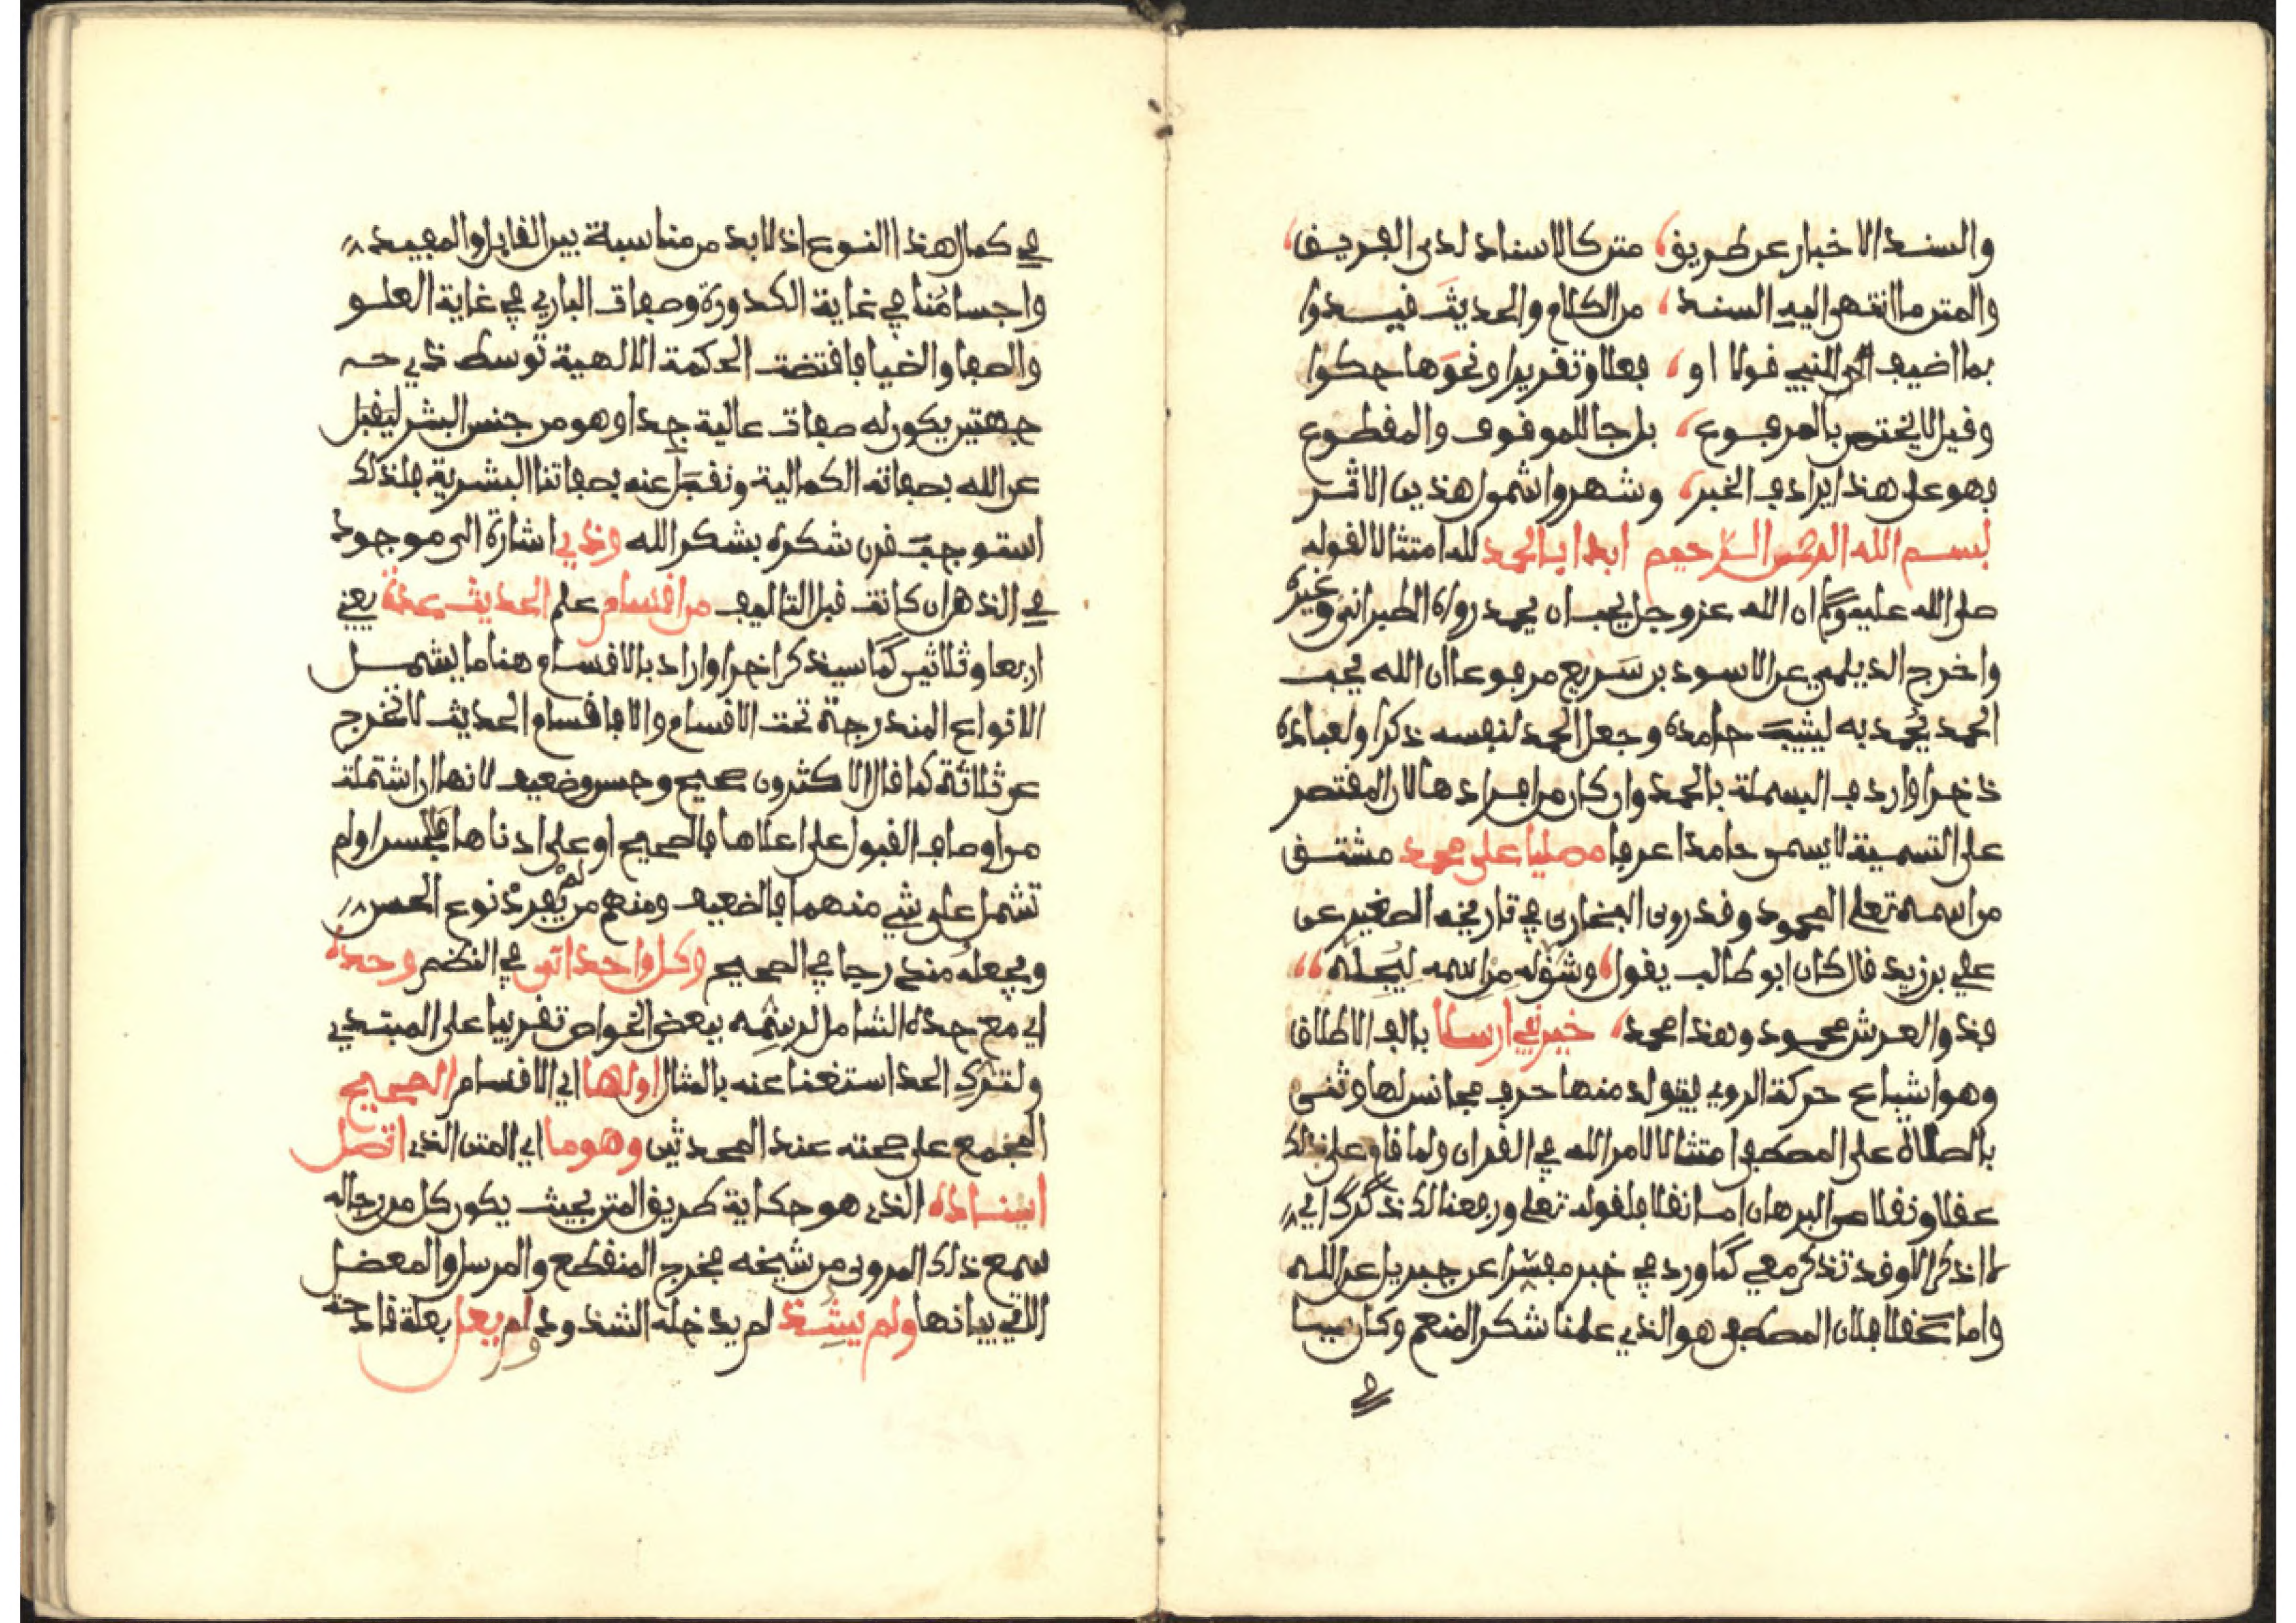 والسند الاخبار عن طريق، متن كالاسناد لدى الفريق،
والمتن ما انتهى اليه السند، من الكلام والحديث قيدوا
بما اضيف الى النبي قولا او، فعلا وتقريرا ونحوها حكوا
وقيل لا يختص بالمرفوع، بل جا للموقوف والمقطوع
فهو على هذا يرادف الخبر، وشهروا شمول هذين الاثر
بسم الله الرحمن الرحيم ابدا بالحمد لله امتثالا لقوله
صلى الله عليه وسلم ان الله عز وجل يحب ان يحمد رواه الطبراني وغيره
واخرج الديلمي عن الاسود بن سريع مرفوعا ان الله يحب
الحمد يحمد به ليثيب حامده وجعل الحمد لنفسه ذكرا ولعباده
ذخرا واردف البسملة بالحمد وان كان من افرادها لان المقتصر
على التسمية لا يسمى حامدا عرفا مصليا على محمد مشتق
من اسمه تعلى المحمود وقد روى البخاري في تاريخه الصغير عن
علي بن زيد قال كان ابو طالب يقول، وشق له من اسمه ليجله،،
فذو العرش محمود وهذا محمد، خير نبي ارسلا بالف الاطلاق
وهو اشباع حركة الروي فيتولد منها حرف مجانس لها وثنى
بالصلاة على المصطفى امتثالا لامر الله في القران ولما قام على ذلك
عقلا ونقلا من البرهان اما نقلا فلقوله تعلى ورفعنا لك ذكرك اي
لا اذكر الا وقد تذكر معي كما ورد في خبر مفسرا عن جبريل عن الله
واما عقلا فلان المصطفى هو الذي علمنا شكر المنعم وكان سببا
في
في كمال هذا النوع اذ لا بد من مناسبة بين القابل والمفيد
واجسامنا في غاية الكدورة وصفات الباري في غاية العلو
والصفا والضيا فاقتضت الحكمة الالهية توسط ذي
جهتين يكون له صفات عالية جدا وهو من جنس البشر ليقبل
عن الله بصفاته الكمالية ونقبل عنه بصفاتنا البشرية فلذلك
استوجب قرن شكره بشكر الله وذي اشارة الى موجود
في الذهن ان كانت قبل التاليف من اقسام علم الحديث عدة يعني
اربعا وثلاثين كما سيذكر اخرا واراد بالاقسام هنا ما يشمل
الانواع المندرجة تحت الاقسام والا فاقسام الحديث لا تخرج
عن ثلاثة كما قال الاكثرون صحيح وحسن وضعيف لانها ان اشتملت
من اوصاف القبول على اعلاها فالصحيح او على ادناها فالحسن او لم
تشمل على شي منهما فالضعيف ومنهم من لم يفرد نوع الحسن
ويجعله مندرجا في الصحيح وكل واحد اتى في النظم وحده
اي مع حده الشامل لرسمه ببعض الخواص تقريبا على المبتدي
ولترك الحد استغنا عنه بالمثال اولها اي الاقسام الصحيح
المجمع على صحته عند المحدثين وهو ما اي المتن الذي اتصل
اسناده الذي هو حكاية طريق المتن بحيث يكون كل من رجاله
سمع ذلك المروي من شيخه فخرج المنقطع والمرسل والمعضل
الاتي بيانها ولم يشذ لم يدخله الشذوذ ولم يعل بعلة قادحة